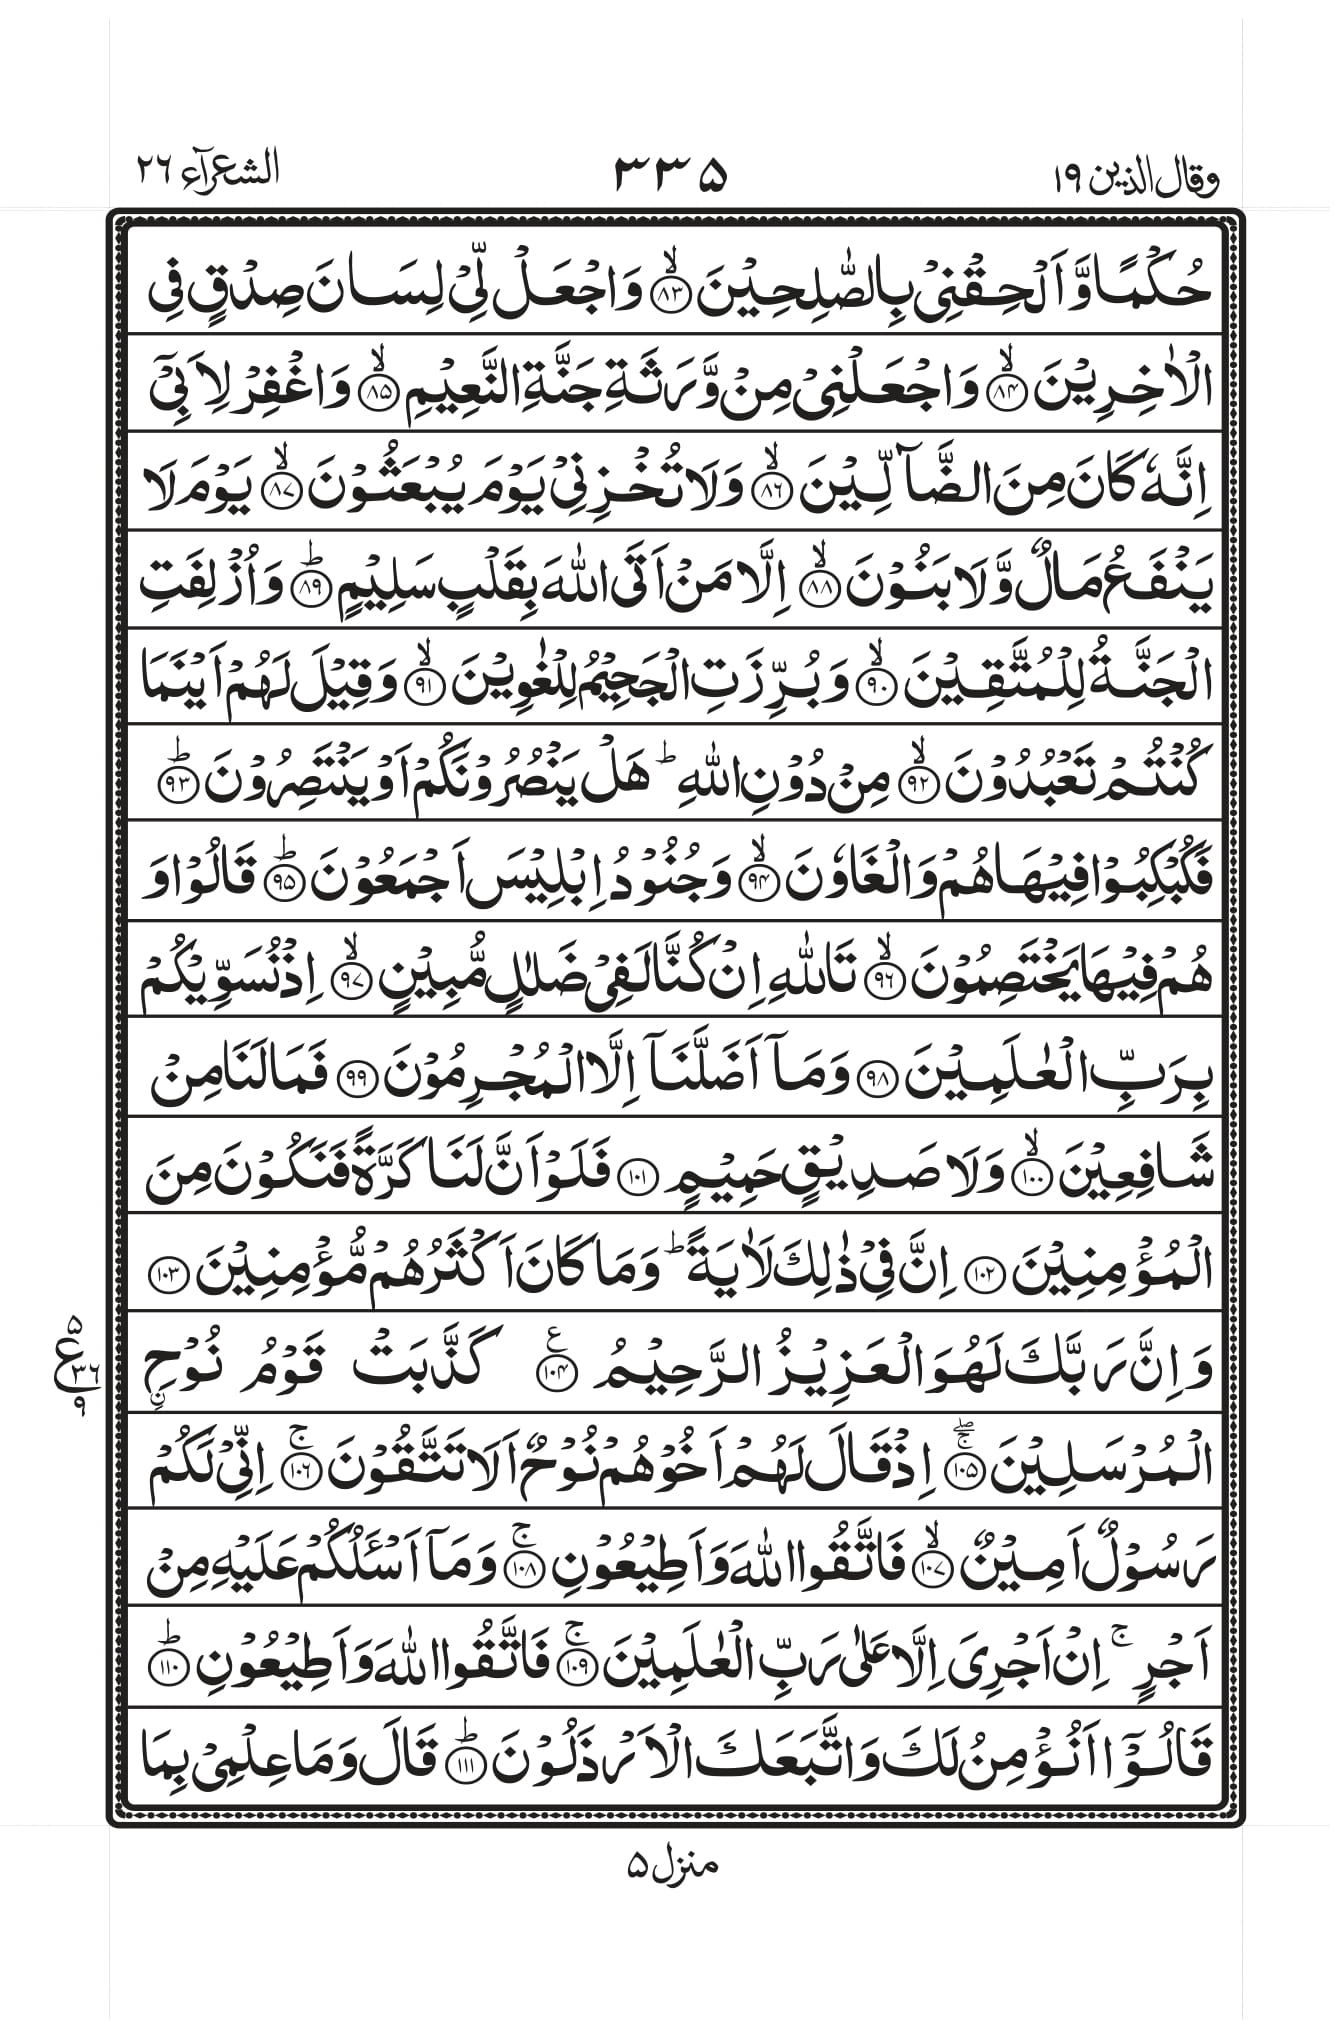 وقال الذين ١٩ ٣٣٥ الشعرآء ٢٦
حُكْمًا وَّاَلْحِقْنِیْ بِالصّٰلِحِیْنَ ۙ﴿٨٣﴾ وَاجْعَلْ لِّیْ لِسَانَ صِدْقٍ فِی
الْاٰخِرِیْنَ ۙ﴿٨٤﴾ وَاجْعَلْنِیْ مِنْ وَّرَثَةِ جَنَّةِ النَّعِیْمِ ۙ﴿٨٥﴾ وَاغْفِرْ لِاَبِیْۤ
اِنَّهٗ كَانَ مِنَ الضَّآلِّیْنَ ۙ﴿٨٦﴾ وَلَا تُخْزِنِیْ یَوْمَ یُبْعَثُوْنَ ۙ﴿٨٧﴾ یَوْمَ لَا
یَنْفَعُ مَالٌ وَّلَا بَنُوْنَ ۙ﴿٨٨﴾ اِلَّا مَنْ اَتَی اللّٰهَ بِقَلْبٍ سَلِیْمٍ ؕ﴿٨٩﴾ وَاُزْلِفَتِ
الْجَنَّةُ لِلْمُتَّقِیْنَ ۙ﴿٩٠﴾ وَبُرِّزَتِ الْجَحِیْمُ لِلْغٰوِیْنَ ۙ﴿٩١﴾ وَقِیْلَ لَهُمْ اَیْنَمَا
كُنْتُمْ تَعْبُدُوْنَ ۙ﴿٩٢﴾ مِنْ دُوْنِ اللّٰهِ ؕ هَلْ یَنْصُرُوْنَكُمْ اَوْ یَنْتَصِرُوْنَ ؕ﴿٩٣﴾
فَكُبْكِبُوْا فِیْهَا هُمْ وَالْغَاوٗنَ ۙ﴿٩٤﴾ وَجُنُوْدُ اِبْلِیْسَ اَجْمَعُوْنَ ؕ﴿٩٥﴾ قَالُوْا وَ
هُمْ فِیْهَا یَخْتَصِمُوْنَ ۙ﴿٩٦﴾ تَاللّٰهِ اِنْ كُنَّا لَفِیْ ضَلٰلٍ مُّبِیْنٍ ۙ﴿٩٧﴾ اِذْ نُسَوِّیْكُمْ
بِرَبِّ الْعٰلَمِیْنَ ﴿٩٨﴾ وَمَاۤ اَضَلَّنَاۤ اِلَّا الْمُجْرِمُوْنَ ﴿٩٩﴾ فَمَا لَنَا مِنْ
شَافِعِیْنَ ۙ﴿١٠٠﴾ وَلَا صَدِیْقٍ حَمِیْمٍ ﴿١٠١﴾ فَلَوْ اَنَّ لَنَا كَرَّةً فَنَكُوْنَ مِنَ
الْمُؤْمِنِیْنَ ﴿١٠٢﴾ اِنَّ فِیْ ذٰلِكَ لَاٰیَةً ؕ وَمَا كَانَ اَكْثَرُهُمْ مُّؤْمِنِیْنَ ﴿١٠٣﴾
وَاِنَّ رَبَّكَ لَهُوَ الْعَزِیْزُ الرَّحِیْمُ ﴿١٠٤﴾ ع كَذَّبَتْ قَوْمُ نُوْحِ نِ
٥ ع ٣٦ ٩
الْمُرْسَلِیْنَ ۚۖ﴿١٠٥﴾ اِذْ قَالَ لَهُمْ اَخُوْهُمْ نُوْحٌ اَلَا تَتَّقُوْنَ ۚ﴿١٠٦﴾ اِنِّیْ لَكُمْ
رَسُوْلٌ اَمِیْنٌ ۙ﴿١٠٧﴾ فَاتَّقُوا اللّٰهَ وَاَطِیْعُوْنِ ۚ﴿١٠٨﴾ وَمَاۤ اَسْـَٔلُكُمْ عَلَیْهِ مِنْ
اَجْرٍ ۚ اِنْ اَجْرِیَ اِلَّا عَلٰی رَبِّ الْعٰلَمِیْنَ ۚ﴿١٠٩﴾ فَاتَّقُوا اللّٰهَ وَاَطِیْعُوْنِ ؕ﴿١١٠﴾
قَالُوْۤا اَنُؤْمِنُ لَكَ وَاتَّبَعَكَ الْاَرْذَلُوْنَ ؕ﴿١١١﴾ قَالَ وَمَا عِلْمِیْ بِمَا
منزل ٥